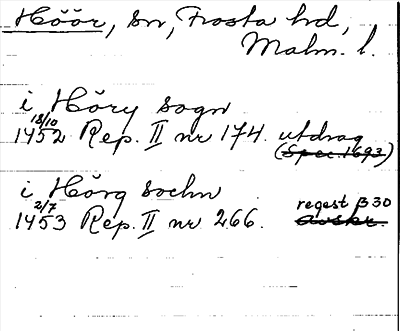 Höör, sn, Frosta hd,
Malm. l.
i Höry sogn
18/10
1452 Rep. II nr 174. utdrag
(Spec. 1693)
i Hörg sochn
2/7 regest β 30
1453 Rep. II nr 266. avskr.